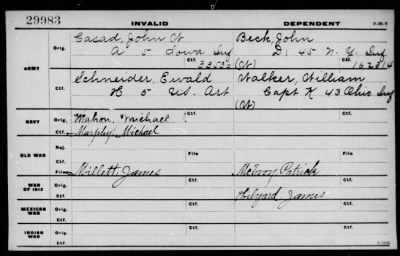 29983
INVALID
DEPENDENT
Orig. Casad, John W Beck, John
A 5 Iowa Inf D. 45 N. Y. Inf.
Ctf. (Ct)
ARMY
Orig. Schneider, Ewald Walker, William
H 5 US. Art Capt K 43 Ohio Inf
Ctf. (Ct)
NAVY Orig. Mahon, Michael Orig.
Ctf. Murphy, Michael Ctf.
OLD WAR Rej.
File Millett, James McEvoy Patrick
WAR OF 1812 Orig. Hilyard, James
Ctf.
MEXICAN WAR Orig.
Ctf.
INDIAN WAR Orig.
Ctf.